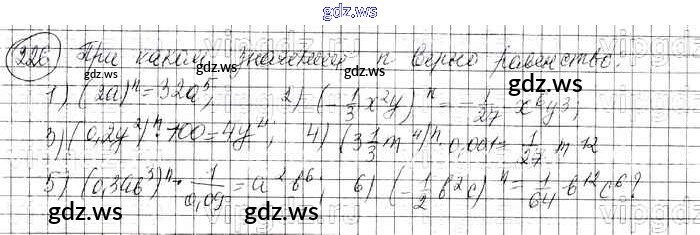 gdz.ws
226 При каком значении n верно равенство:
1) (2a)^n = 32a^5; 2) (-1/3 x^2y)^n = -1/27 x^6y^3;
3) (0,2y^2)^n · 100 = 4y^4; 4) (3 1/3 m^4)^n · 0,001 = 1/27 m^12
5) (0,3ab^3)^n · 1/0,09 = a^2b^6; 6) (-1/2 b^2c)^n = 1/64 b^12c^6?
gdz.ws gdz.ws gdz.ws